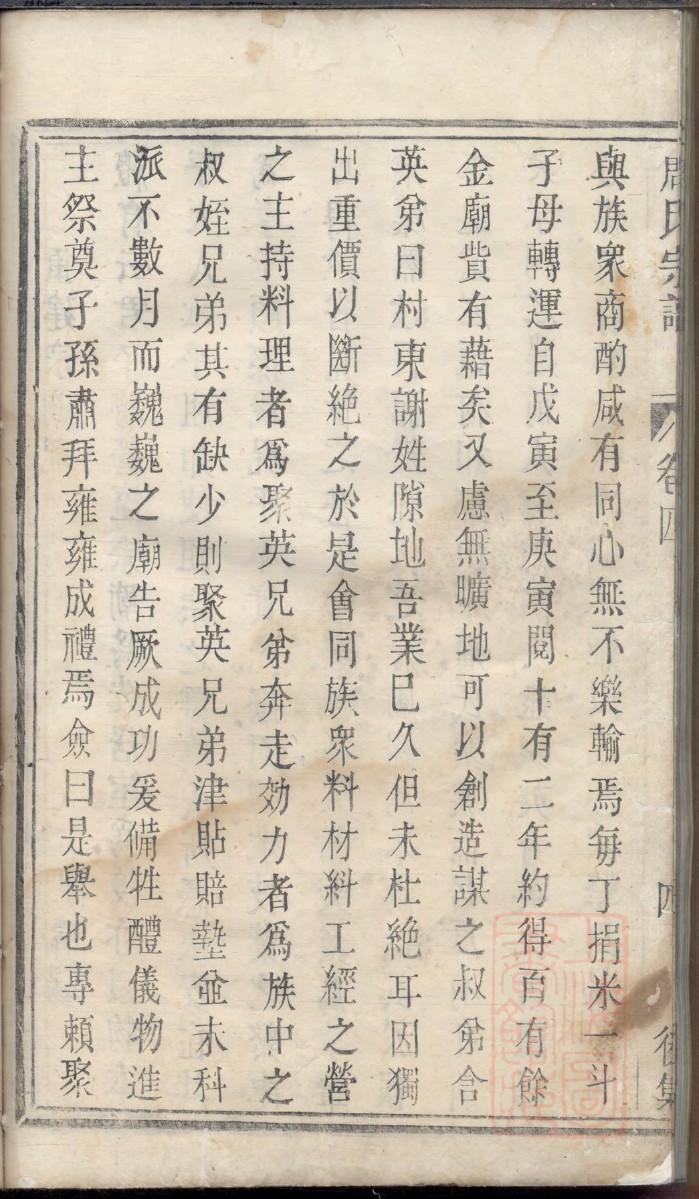 周氏宗譜 卷四 四
與族衆商酌咸有同心無不樂輸焉每丁捐米一斗
子母轉運自戊寅至庚寅閱十有二年約得百有餘
金廟貲有藉矣又慮無曠地可以創造謀之叔弟含
英弟曰村東謝姓隙地吾業已久但未杜絶耳因獨
出重價以斷絶之於是會同族衆料材料工經之營
之主持料理者爲聚英兄弟奔走効力者爲族中之
叔姪兄弟其有缺少則聚英兄弟津貼賠墊並未科
派不數月而巍巍之廟告厥成功爰備牲醴儀物進
主祭奠子孫肅拜雍雍成禮焉僉曰是舉也專頼聚